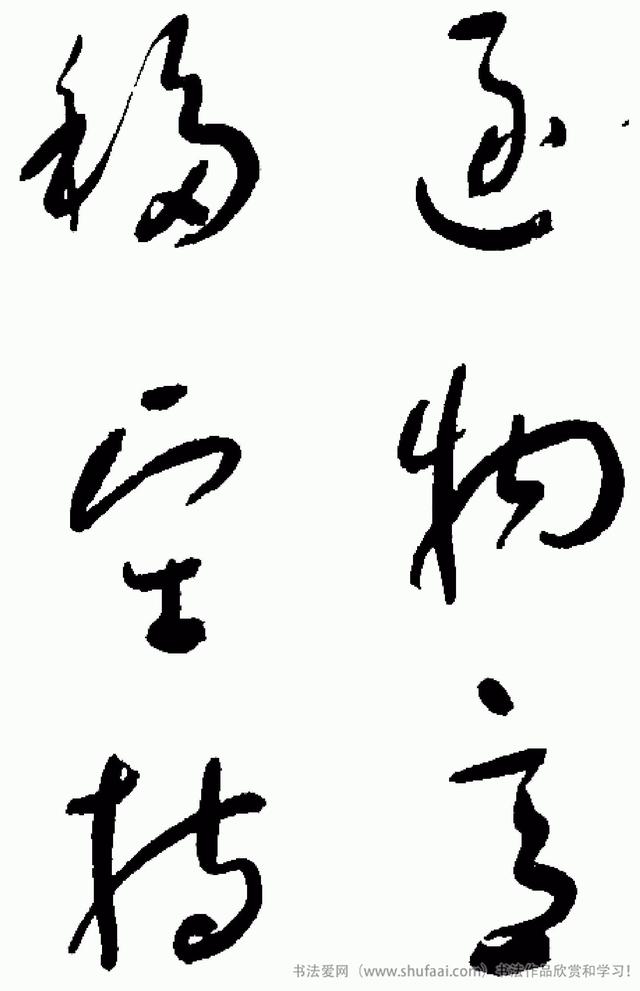 逐物意
移堅持
书法爱网（www.shufaai.com）书法作品欣赏和学习！